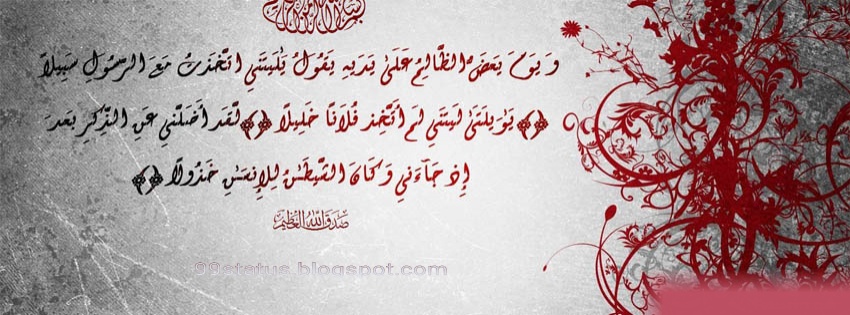 وَيَوْمَ يَعَضُّ الظَّالِمُ عَلَىٰ يَدَيْهِ يَقُولُ يَٰلَيْتَنِي اتَّخَذْتُ مَعَ الرَّسُولِ سَبِيلًا
﴿﴾ يَٰوَيْلَتَىٰ لَيْتَنِي لَمْ أَتَّخِذْ فُلَانًا خَلِيلًا ﴿﴾ لَّقَدْ أَضَلَّنِي عَنِ الذِّكْرِ بَعْدَ
إِذْ جَآءَنِي وَكَانَ الشَّيْطَٰنُ لِلْإِنسَٰنِ خَذُولًا ﴿﴾
صدق الله العظيم
99status.blogspot.com